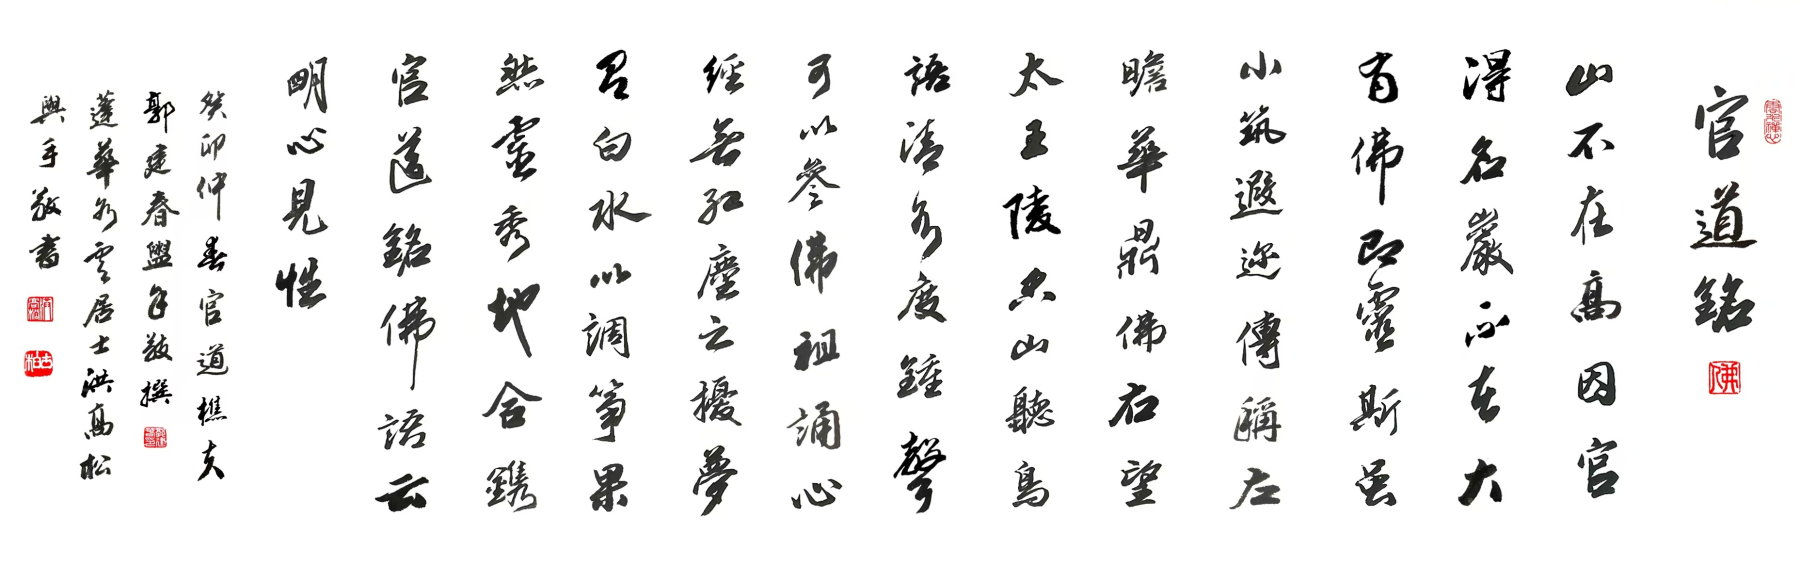 官道銘
山不在高因官
得名巖不在大
有佛即靈斯虽
小筑遐迩傳稱左
瞻華鼎佛右望
太王陵空山聽鳥
語清谷度鍾聲
可以參佛祖誦心
經無紅塵之擾夢
召白水以調箏果
然靈秀地合鐫
官道銘佛語云
明心見性
癸卯仲春官道樵夫
郭建春盥手敬撰
蓮華谷雲居士洪高松
盥手敬書